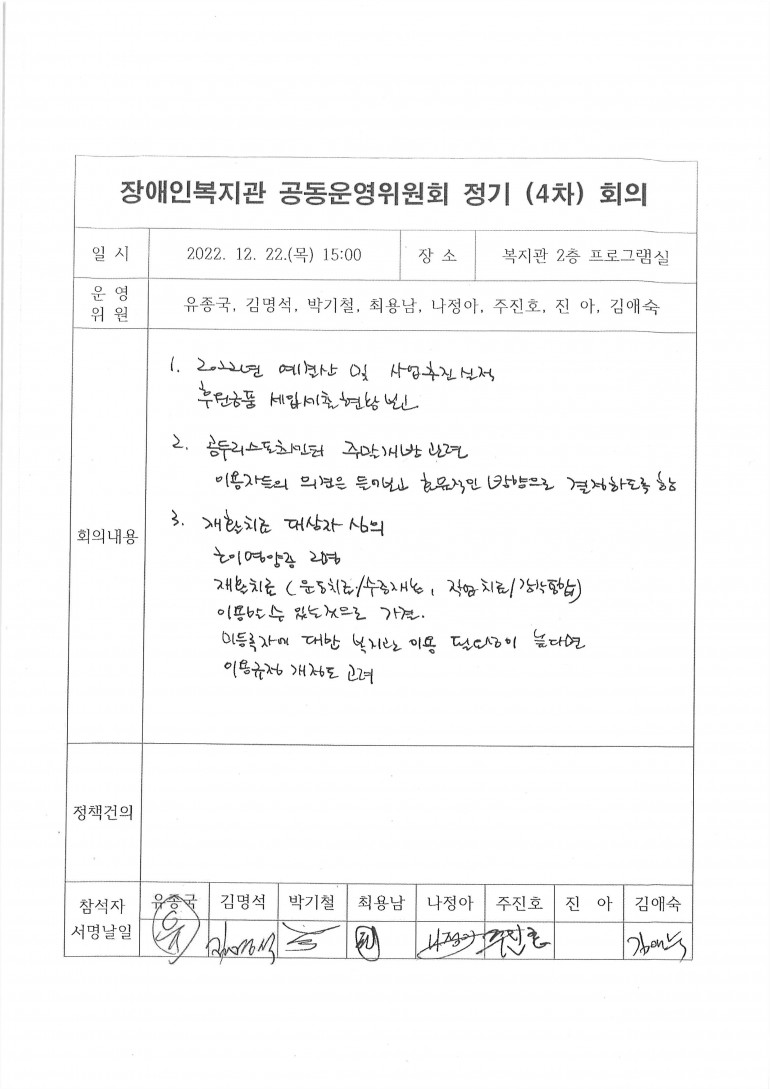 장애인복지관 공동운영위원회 정기 (4차) 회의
일 시
2022. 12. 22.(목) 15:00
장 소
복지관 2층 프로그램실
운 영
위 원
유종국, 김명석, 박기철, 최용남, 나정아, 주진호, 진 아, 김애숙
회의내용
1. 2022년 예결산 및 사업추진실적
후원금품 세입세출현황 보고
2. 주말개방 관련
이용자들의 의견을 들어보고 효율적인 방향으로 결정하도록 함
3. 재활치료 대상자 심의
2명
재활치료 (운동치료/수중재활, 작업치료/감각통합)
이용할 수 있는것으로 가결.
미등록자에 대한 복지관 이용 필요성이 높다면
이용규정 개정도 고려
정책건의
참석자
서명날일
유종국 김명석 박기철 최용남 나정아 주진호 진 아 김애숙
김명석 나정아 주진호 김애숙